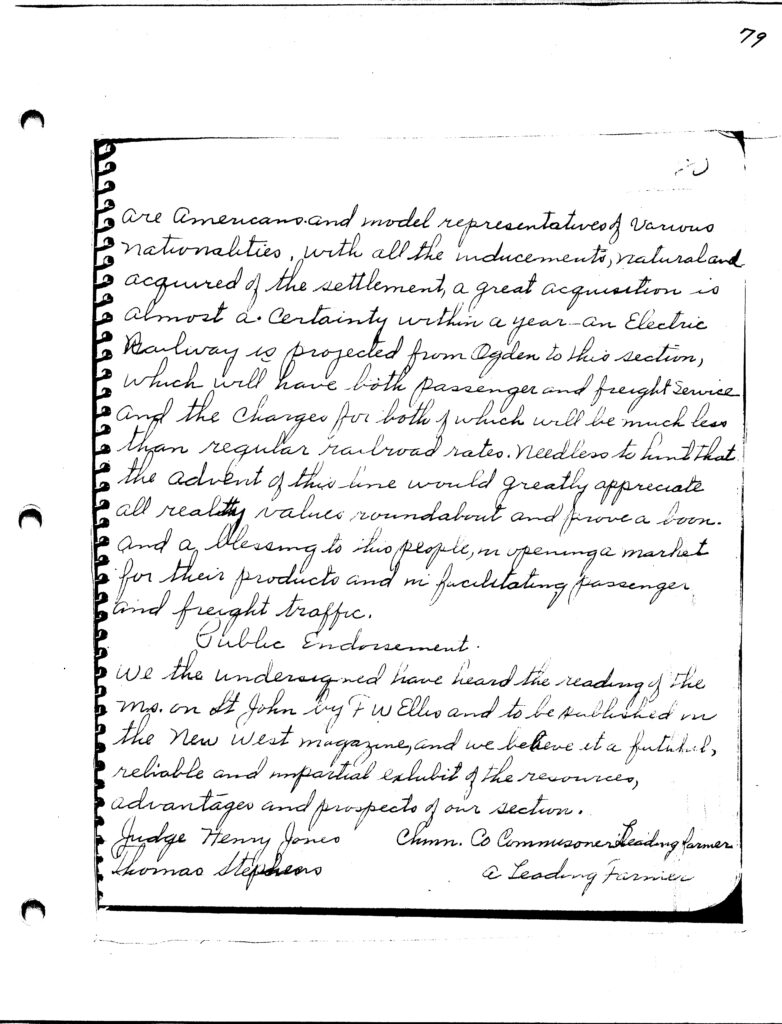 79
are Americans and model representatives of Various
Nationalities, with all the inducements, natural and
acquired of the settlement, a great acquisition is
almost a. Certainty within a year - an Electric
Railway is projected from Ogden to this section,
which will have both passenger and freight service
and the charges for both of which will be much less
than regular railroad rates. Needless to hint that
the advent of this line would greatly appreciate
all realty values roundabout and prove a boon.
and a blessing to this people, in opening a market
for their products and in facilitating passenger
and freight traffic.
Public Endorsement.
We the undersigned have heard the reading of the
Ms. on St John by F W Ellis and to be published in
the New West magazine, and we believe it a
reliable and impartial exhibit of the resources,
advantages and prospects of our section.
Judge Henry Jones Chmn. Co Commisoner Leading farmer
Thomas Stephens a Leading Farmer